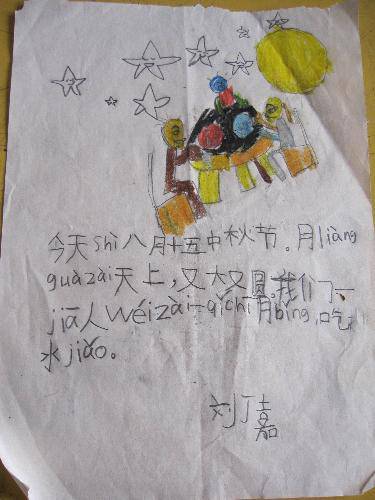 今天shì八月十五中秋节。月liàng
guàzài天上，又大又圆。我们一
jiā人wéizài一qǐchī月bǐng，吃
水jiǎo。
刘丁嘉